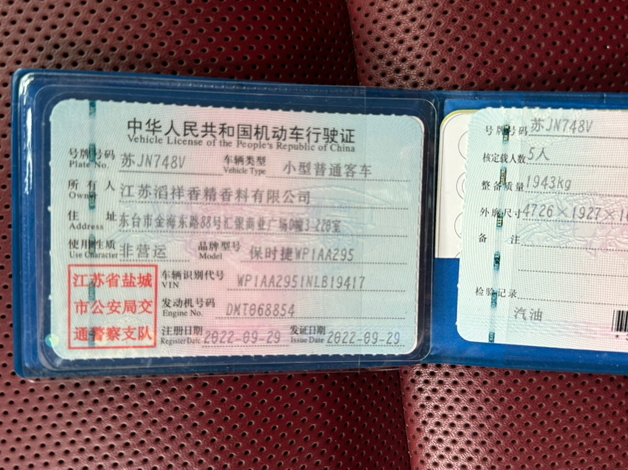 中华人民共和国机动车行驶证
Vehicle License of the People's Republic of China
号牌号码 苏JN748V 车辆类型 小型普通客车
Plate No. Vehicle Type
所有人 江苏滔祥香精香料有限公司
Owner
住址 东台市金海东路88号汇银商业广场D幢3-228室
Address
使用性质 非营运 品牌型号 保时捷WP1AA295
Use Character Model
江苏省盐城
市公安局交
通警察支队
车辆识别代号 WP1AA2951NLB19417
VIN
发动机号码 DMT068854
Engine No.
注册日期 2022-09-29 发证日期 2022-09-29
Register Date Issue Date
号牌号码 苏JN748V
核定载人数 5人
整备质量 1943kg
外廓尺寸 4726×1927×1
备注
检验记录
汽油